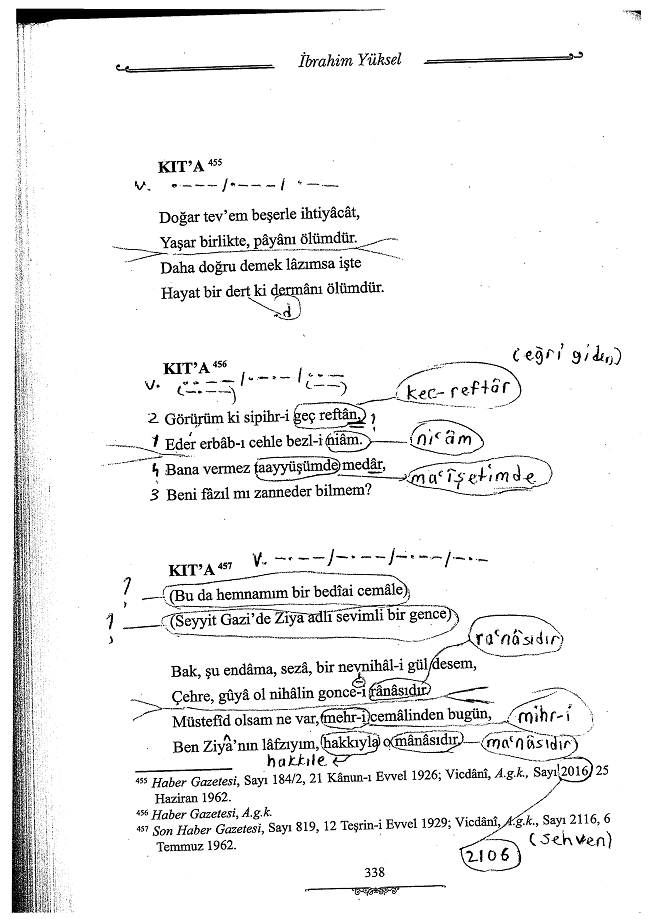 İbrahim Yüksel
KIT’A 455
v. . _ _ _ / . _ _ _ / . _ _
Doğar tev’em beşerle ihtiyâcât,
Yaşar birlikte, pâyânı ölümdür.
Daha doğru demek lâzımsa işte
Hayat bir dert ki dermânı ölümdür.
d
(eğri giden)
KIT’A 456
v.
kec-reftâr
2 Görürüm ki sipihr-i geç reftân,
1 Eder erbâb-ı cehle bezl-i niâm.
niʿâm
4 Bana vermez taayyüşümde medâr,
maʿîşetimde
3 Beni fâzıl mı zanneder bilmem?
KIT’A 457 V. _ . _ _ / _ . _ _ / _ . _ _ / _ . _
? (Bu da hemnamım bir bedîai cemâle)
? (Seyyit Gazi’de Ziya adlı sevimli bir gence)
raʿnâsıdır
Bak, şu endâma, sezâ, bir nevnihâl-i gül desem,
Çehre, gûyâ ol nihâlin gonce-i rânâsıdır.
Müstefîd olsam ne var, mehr-i cemâlinden bugün,
mihr-i
Ben Ziyâ’nın lâfzıyım, hakkıyla o mânâsıdır.
maʿnâsıdır
hakkıle
455 Haber Gazetesi, Sayı 184/2, 21 Kânun-ı Evvel 1926; Vicdânî, A.g.k., Sayı 2016, 25
Haziran 1962.
456 Haber Gazetesi, A.g.k.
457 Son Haber Gazetesi, Sayı 819, 12 Teşrin-i Evvel 1929; Vicdânî, A.g.k., Sayı 2116, 6
Temmuz 1962.
(sehven)
2106
338